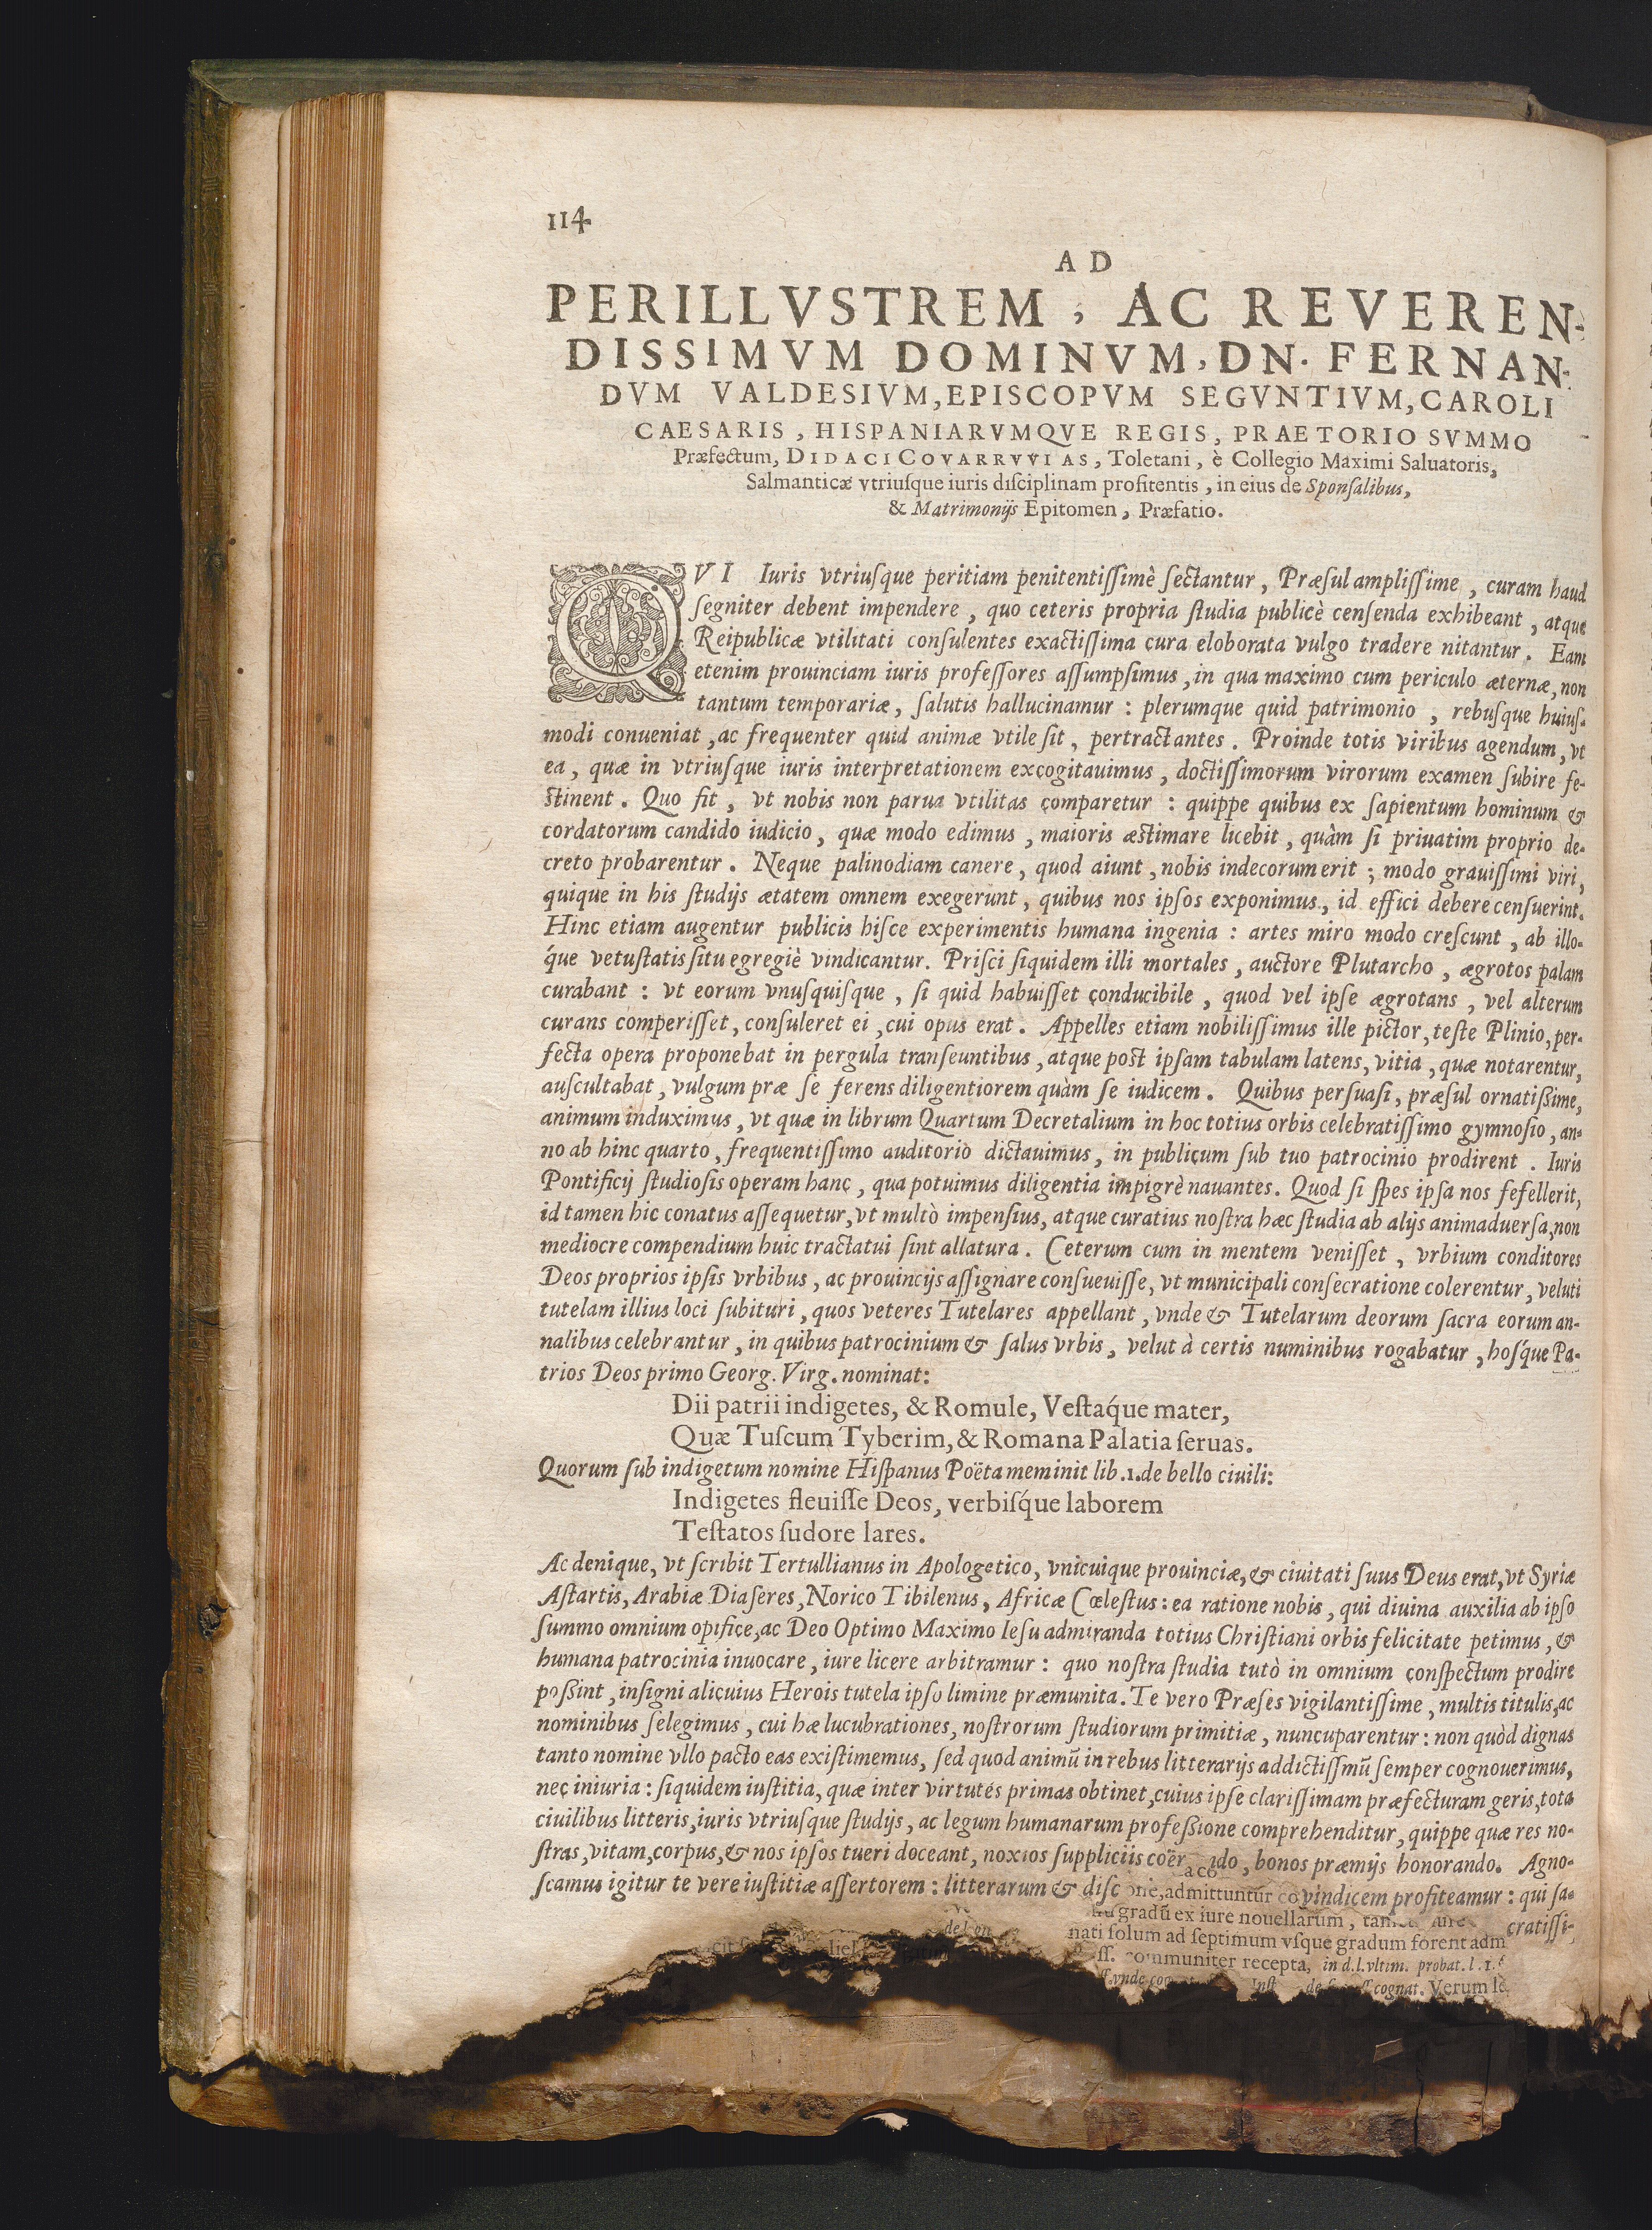 114
AD
PERILLVSTREM, AC REVEREN-
DISSIMVM DOMINVM, DN. FERNAN-
DVM VALDESIVM, EPISCOPVM SEGVNTIVM, CAROLI
CAESARIS, HISPANIARVMQVE REGIS, PRAETORIO SVMMO
Præfectum, DIDACI COVARRVVIAS, Toletani, è Collegio Maximi Saluatoris,
Salmanticæ vtriuſque iuris diſciplinam profitentis, in eius de Sponſalibus,
& Matrimonijs Epitomen, Præfatio.
QVI Iuris vtriuſque peritiam penitentiſſimè ſectantur, Præſul ampliſſime, curam haud
ſegniter debent impendere, quo ceteris propria ſtudia publicè cenſenda exhibeant, atque
Reipublicæ vtilitati conſulentes exactiſſima cura eloborata vulgo tradere nitantur. Eam
etenim prouinciam iuris profeſſores aſſumpſimus, in qua maximo cum periculo æternæ, non
tantum temporariæ, ſalutis hallucinamur: plerumque quid patrimonio, rebuſque huiuſ-
modi conueniat, ac frequenter quid animæ vtile ſit, pertractantes. Proinde totis viribus agendum, vt
ea, quæ in vtriuſque iuris interpretationem excogitauimus, doctiſſimorum virorum examen ſubire fe-
ſtinent. Quo fit, vt nobis non parua vtilitas comparetur: quippe quibus ex ſapientum hominum &
cordatorum candido iudicio, quæ modo edimus, maioris æſtimare licebit, quàm ſi priuatim proprio de-
creto probarentur. Neque palinodiam canere, quod aiunt, nobis indecorum erit; modo grauiſſimi viri,
quique in his ſtudijs ætatem omnem exegerunt, quibus nos ipſos exponimus, id effici debere cenſuerint.
Hinc etiam augentur publicis hiſce experimentis humana ingenia: artes miro modo creſcunt, ab illo-
q́ue vetuſtatis ſitu egregiè vindicantur. Priſci ſiquidem illi mortales, auctore Plutarcho, ægrotos palam
curabant: vt eorum vnuſquiſque, ſi quid habuiſſet conducibile, quod vel ipſe ægrotans, vel alterum
curans comperiſſet, conſuleret ei, cui opus erat. Appelles etiam nobiliſſimus ille pictor, teſte Plinio, per-
fecta opera proponebat in pergula tranſeuntibus, atque poſt ipſam tabulam latens, vitia, quæ notarentur,
auſcultabat, vulgum præ ſe ferens diligentiorem quàm ſe iudicem. Quibus perſuaſi, præſul ornatißime,
animum induximus, vt quæ in librum Quartum Decretalium in hoc totius orbis celebratiſſimo gymnoſio, an-
no ab hinc quarto, frequentiſſimo auditorio dictauimus, in publicum ſub tuo patrocinio prodirent. Iuris
Pontificij ſtudioſis operam hanc, qua potuimus diligentia impigrè nauantes. Quod ſi ſpes ipſa nos fefellerit,
id tamen hic conatus aſſequetur, vt multò impenſius, atque curatius noſtra hæc ſtudia ab alijs animaduerſa, non
mediocre compendium huic tractatui ſint allatura. Ceterum cum in mentem veniſſet, vrbium conditores
Deos proprios ipſis vrbibus, ac prouincijs aſſignare conſueuiſſe, vt municipali conſecratione colerentur, veluti
tutelam illius loci ſubituri, quos veteres Tutelares appellant, vnde & Tutelarum deorum ſacra eorum an-
nalibus celebrantur, in quibus patrocinium & ſalus vrbis, velut à certis numinibus rogabatur, hoſq́ue Pa-
trios Deos primo Georg. Virg. nominat:
Dii patrii indigetes, & Romule, Veſtaq́ue mater,
Quæ Tuſcum Tyberim, & Romana Palatia ſeruas.
Quorum ſub indigetum nomine Hiſpanus Poëta meminit lib.1. de bello ciuili:
Indigetes fleuiſſe Deos, verbiſq́ue laborem
Teſtatos ſudore lares.
Ac denique, vt ſcribit Tertullianus in Apologetico, vnicuique prouinciæ, & ciuitati ſuus Deus erat, vt Syriæ
Aſtartis, Arabiæ Diaſeres, Norico Tibilenus, Africæ Cœleſtus: ea ratione nobis, qui diuina auxilia ab ipſo
ſummo omnium opifice, ac Deo Optimo Maximo Ieſu admiranda totius Chriſtiani orbis felicitate petimus, &
humana patrocinia inuocare, iure licere arbitramur: quo noſtra ſtudia tutò in omnium conſpectum prodire
poßint, inſigni alicuius Herois tutela ipſo limine præmunita. Te vero Præſes vigilantiſſime, multis titulis, ac
nominibus ſelegimus, cui hæ lucubrationes, noſtrorum ſtudiorum primitiæ, nuncuparentur: non quòd dignas
tanto nomine vllo pacto eas exiſtimemus, ſed quod animũ in rebus litterarijs addictiſſmũ ſemper cognouerimus,
nec iniuria: ſiquidem iuſtitia, quæ inter virtutes primas obtinet, cuius ipſe clariſſimam præfecturam geris, tota
ciuilibus litteris, iuris vtriuſque ſtudijs, ac legum humanarum profeßione comprehenditur, quippe quæ res no-
ſtras, vitam, corpus, & nos ipſos tueri doceant, noxios ſuppliciis coër do, bonos præmijs honorando. Agno-
ſcamus igitur te vere iuſtitiæ aſſertorem: litterarum & diſc vindicem profiteamur: qui ſa-
cratiſſi-
admittuntur
gradũ ex iure nouellarum,
nati ſolum ad ſeptimum vſque gradum forent adm
communiter recepta, in d.l.vltim. probat. l.1.
cognat. Verum